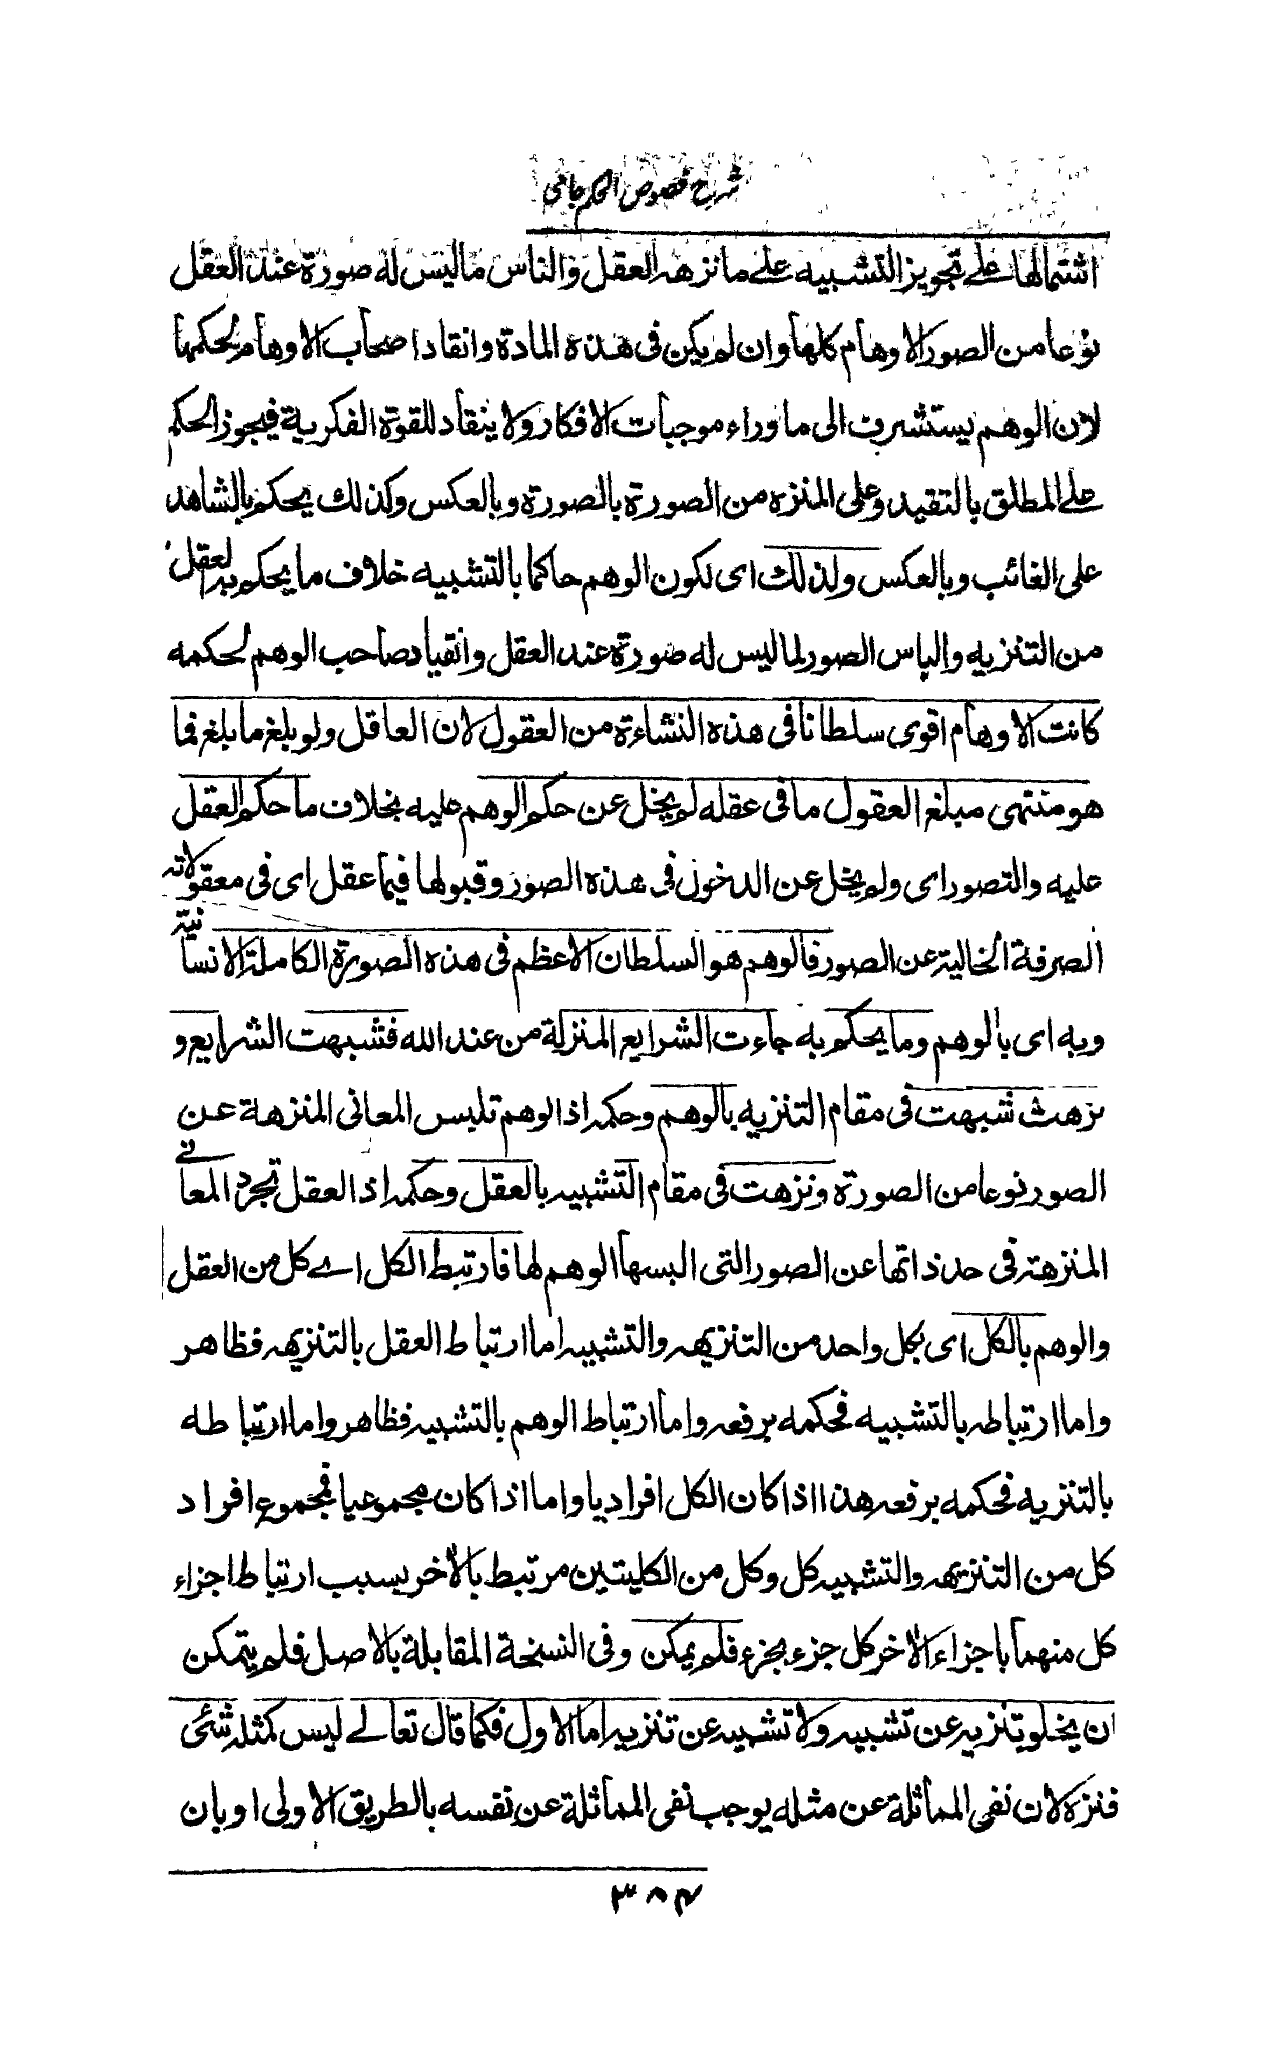 شرح فصوص الحكم جامی
اشتمالها على تجويز التشبيه على ما نزهه العقل والناس ماليس له صورة عند العقل
نوعا من الصور الاوهام كلها وان لم يكن فى هذه المادة وانقاد اصحاب الاوهام لحكمها
لان الوهم يستشرف الى ما وراء موجبات الافكار ولا ينقاد للقوة الفكرية فيجوز الحكم
على المطلق بالتقيد وعلى المنزه من الصورة بالصورة وبالعكس وكذلك يحكم بالشاهد
على الغائب وبالعكس ولذلك اى لكون الوهم حاكما بالتشبيه خلاف ما يحكم به العقل
من التنزيه والباس الصور لما ليس له صورة عند العقل وانقياد صاحب الوهم لحكمه
كانت الاوهام اقوى سلطانا فى هذه النشاءة من العقول لان العاقل ولو بلغ ما بلغ فما
هو منتهى مبلغ العقول ما فى عقله لم يخل عن حكم الوهم عليه بخلاف ما حكم العقل
عليه والتصور اى ولم يخل عن الدخول فى هذه الصور وقبولها فيما عقل اى فى معقولاته
الصرفة الخالية عن الصور فالوهم هو السلطان الاعظم فى هذه الصورة الكاملة الانسانية
وبه اى بالوهم وما يحكم به جاءت الشرايع المنزلة من عند الله فشبهت الشرايع و
نزهت شبهت فى مقام التنزيه بالوهم وحكمه اذ الوهم تلبس المعانى المنزهة عن
الصور نوعا من الصورة ونزهت فى مقام التشبيه بالعقل وحكمه اذ العقل تجرد المعانے
المنزهة فى حد ذاتها عن الصور التى البسها الوهم لها فارتبط الكل اے كل من العقل
والوهم بالكل اى بكل واحد من التنزيهه والتشبيه اما ارتباط العقل بالتنزيهه فظاهر
واما ارتباطه بالتشبيه فحكمه برفعه واما ارتباط الوهم بالتشبيه فظاهر واما ارتباطه
بالتنزيه فحكمه برفعه هذا اذا كان الكل افراديا واما اذا كان مجموعيا فمجموع افراد
كل من التنزيهه والتشبيه كل وكل من الكليتين مرتبط بالآخر بسبب ارتباط اجزاء
كل منهما باجزاء الآخر كل جزء بجزء فلم يمكن وفى النسخة المقابلة بالاصل فلم يتمكن
ان يخلو تنزيه عن تشبيه ولا تشبيه عن تنزيه اما الاول فكما قال تعالے ليس كمثله شئى
فنزه لان نفى المماثلة عن مثله يوجب نفى المماثلة عن نفسه بالطريق الاولى او بان
۳۸۴